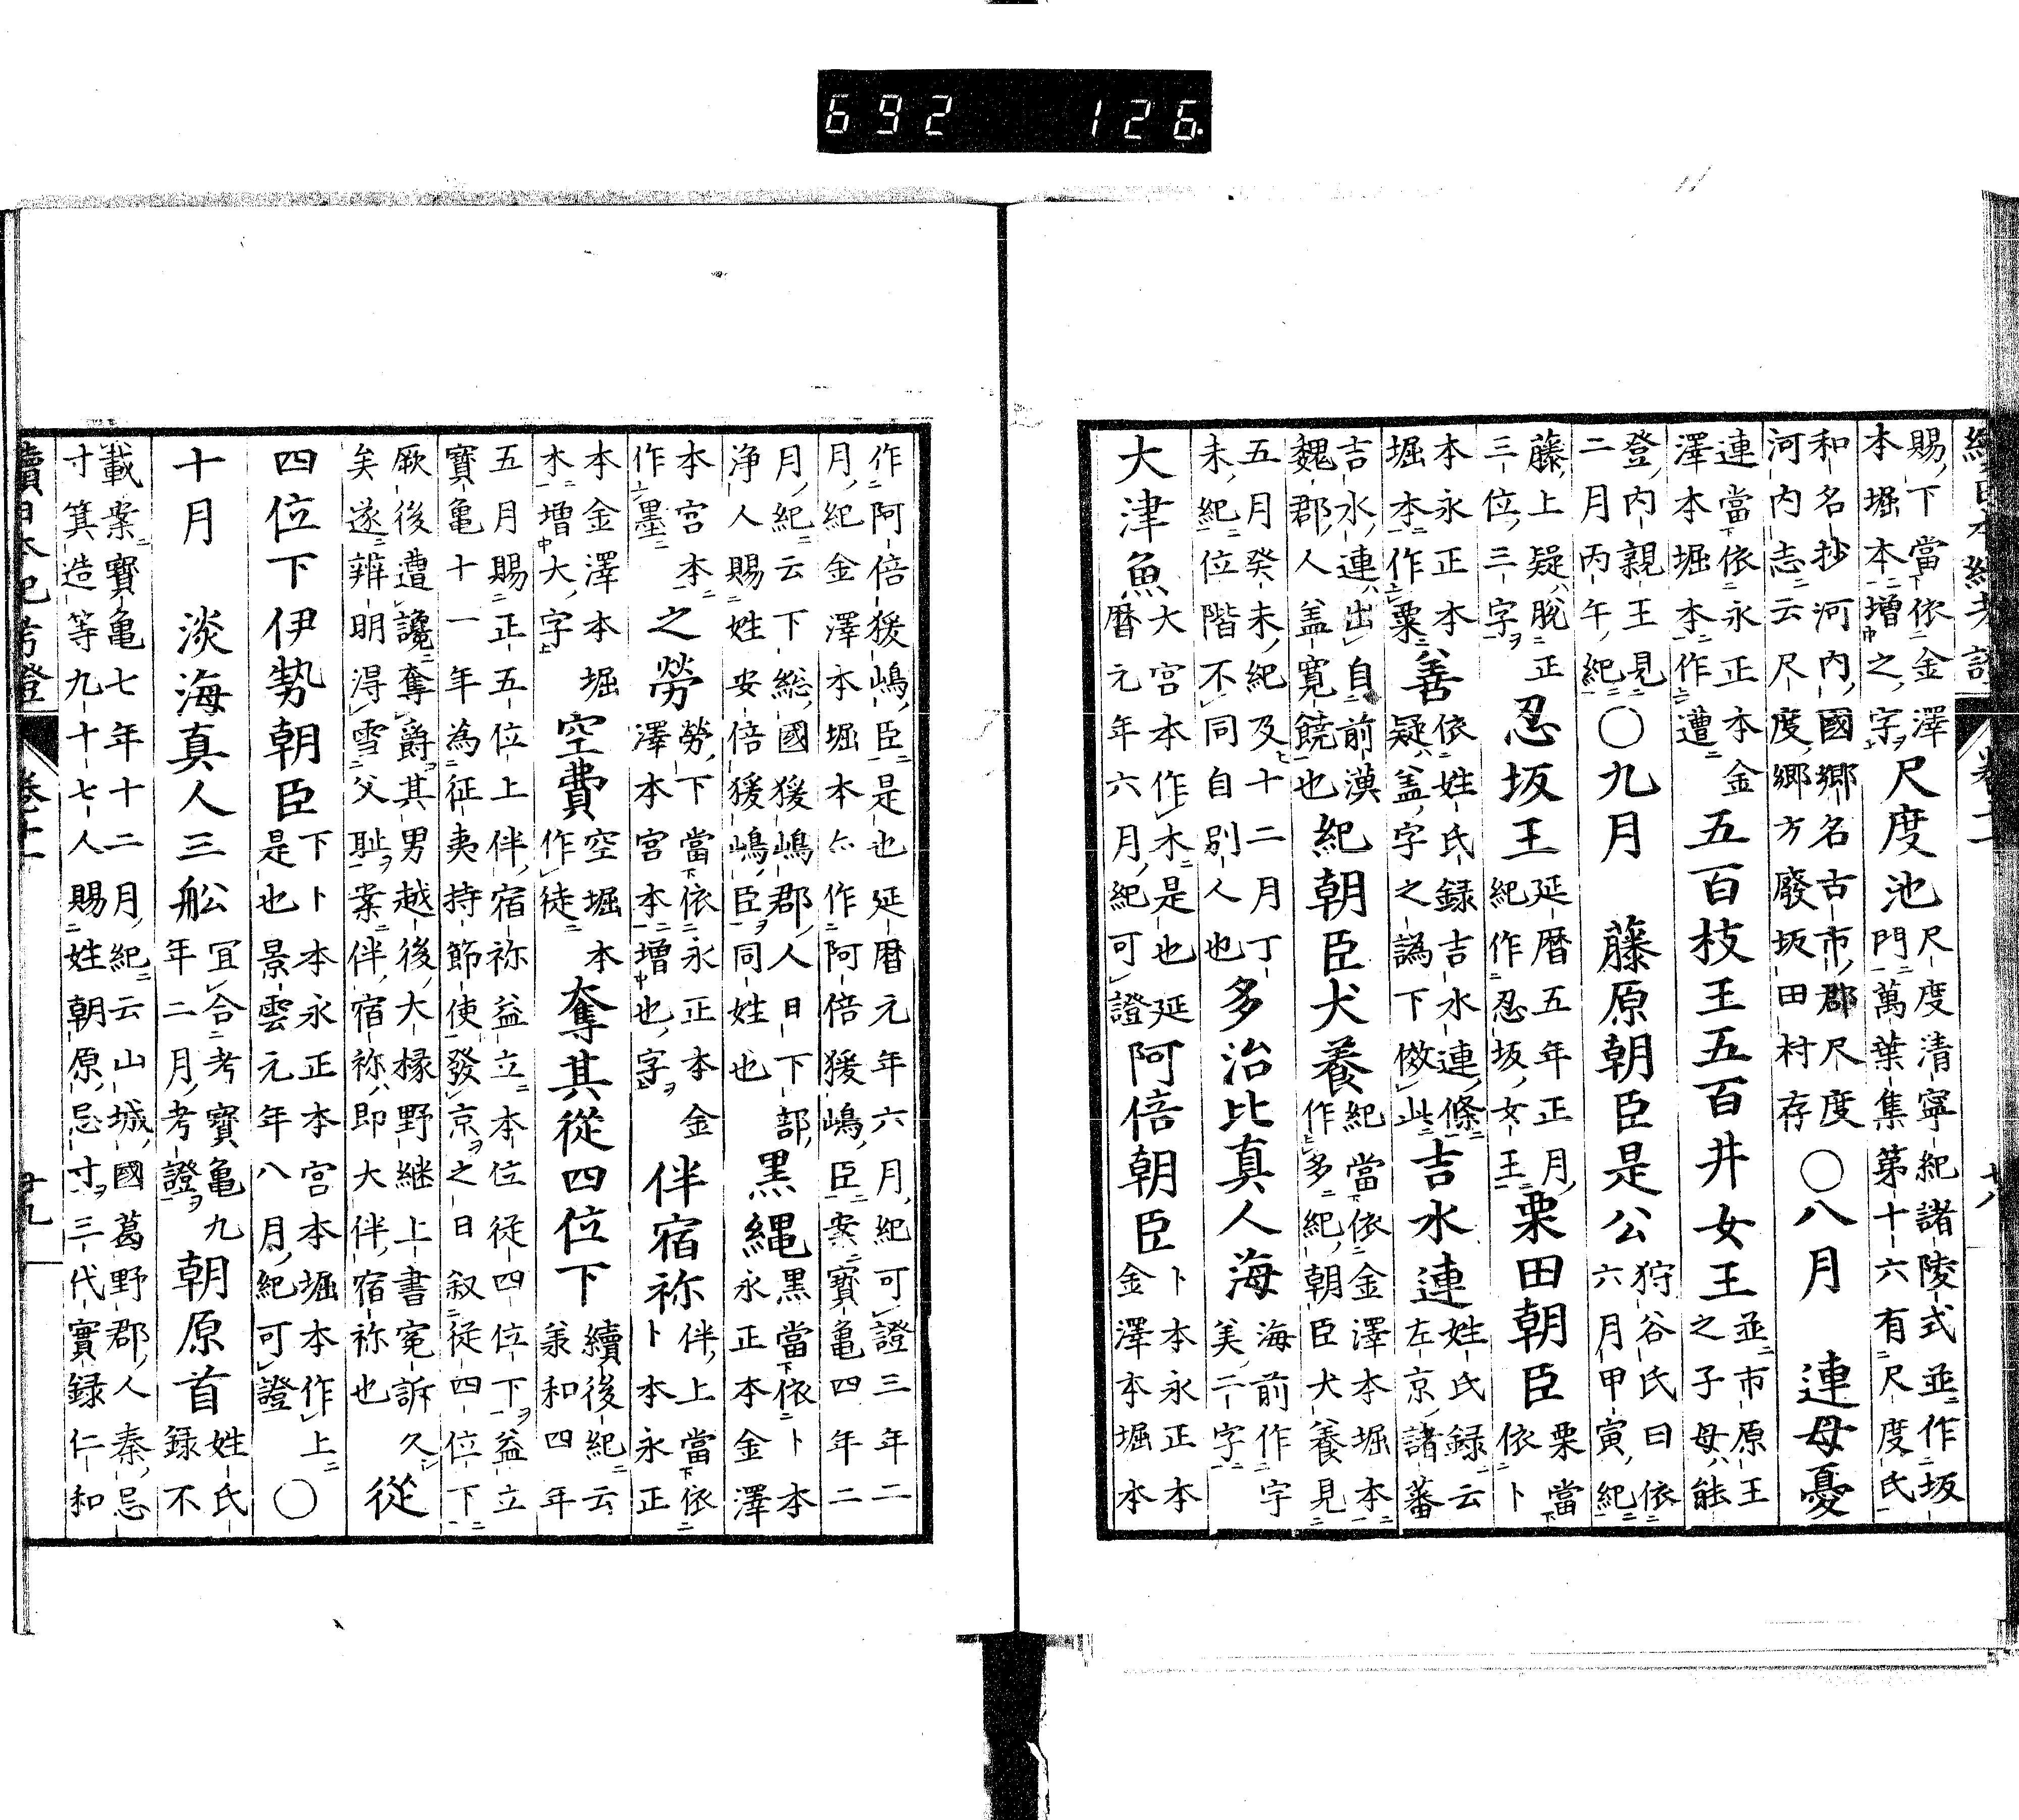 692 126
賜下當依金澤本堀本增之字尺度池尺度清寧紀諸陵式並作坂門萬葉集第十六有尺度氏
和名抄河內國鄉名古市郡尺度河內志云尺度鄉方廢坂田村存○八月 連母憂
連當依永正本金澤本堀本作遭五百枝王五百井女王並市原王之子母ハ能
登內親王見二月丙午紀○九月 藤原朝臣是公狩谷氏曰依六月甲寅紀
藤上疑ハ脫正三位三字忍坂王延曆五年正月紀作忍坂女王栗田朝臣栗當依卜
本永正本堀本作粟善依姓氏録吉水連條疑ハ盖字之譌下傚此吉水連姓氏録云左京諸蕃
吉水連ハ出自前漢魏郡人盖寬饒也紀朝臣犬養紀當依金澤本堀本作多紀朝臣犬養見
五月癸未紀及十二月丁未紀位階不同自別人也多治比真人海海前作字美二字
大津魚大宮本作木是也延曆元年六月紀可證阿倍朝臣卜本永正本金澤本堀本
作阿倍猨嶋臣是也延曆元年六月紀可證三年二月紀金澤本堀本亦作阿倍猨嶋臣案寶龜四年二
月紀云下総國猨嶋郡人日下部淨人賜姓安倍猨嶋臣同姓也黒縄黒當依卜本永正本金澤
本宮本作墨之勞勞下當依永正本金澤本宮本增也字伴宿祢伴上當依卜本永正
本金澤本堀本增大字空費空堀本作徒奪其從四位下續後紀云羕和四年
五月賜正五位上伴宿祢益立本位從四位下益立寶龜十一年為征夷持節使發京之日叙從四位下
厥後遭讒奪爵其男越後大椽野継上書寃訴久矣遂辨明得雪父耻案伴宿祢ハ即大伴宿祢也從
四位下伊勢朝臣下卜本永正本宮本堀本作上是也景雲元年八月紀可證○
十月 淡海真人三舩宜合考寶龜九年二月考證朝原首姓氏録不
載案寶龜七年十二月紀云山城國葛野郡人秦忌寸箕造等九十七人賜姓朝原忌寸三代實録仁和
續日本紀考證